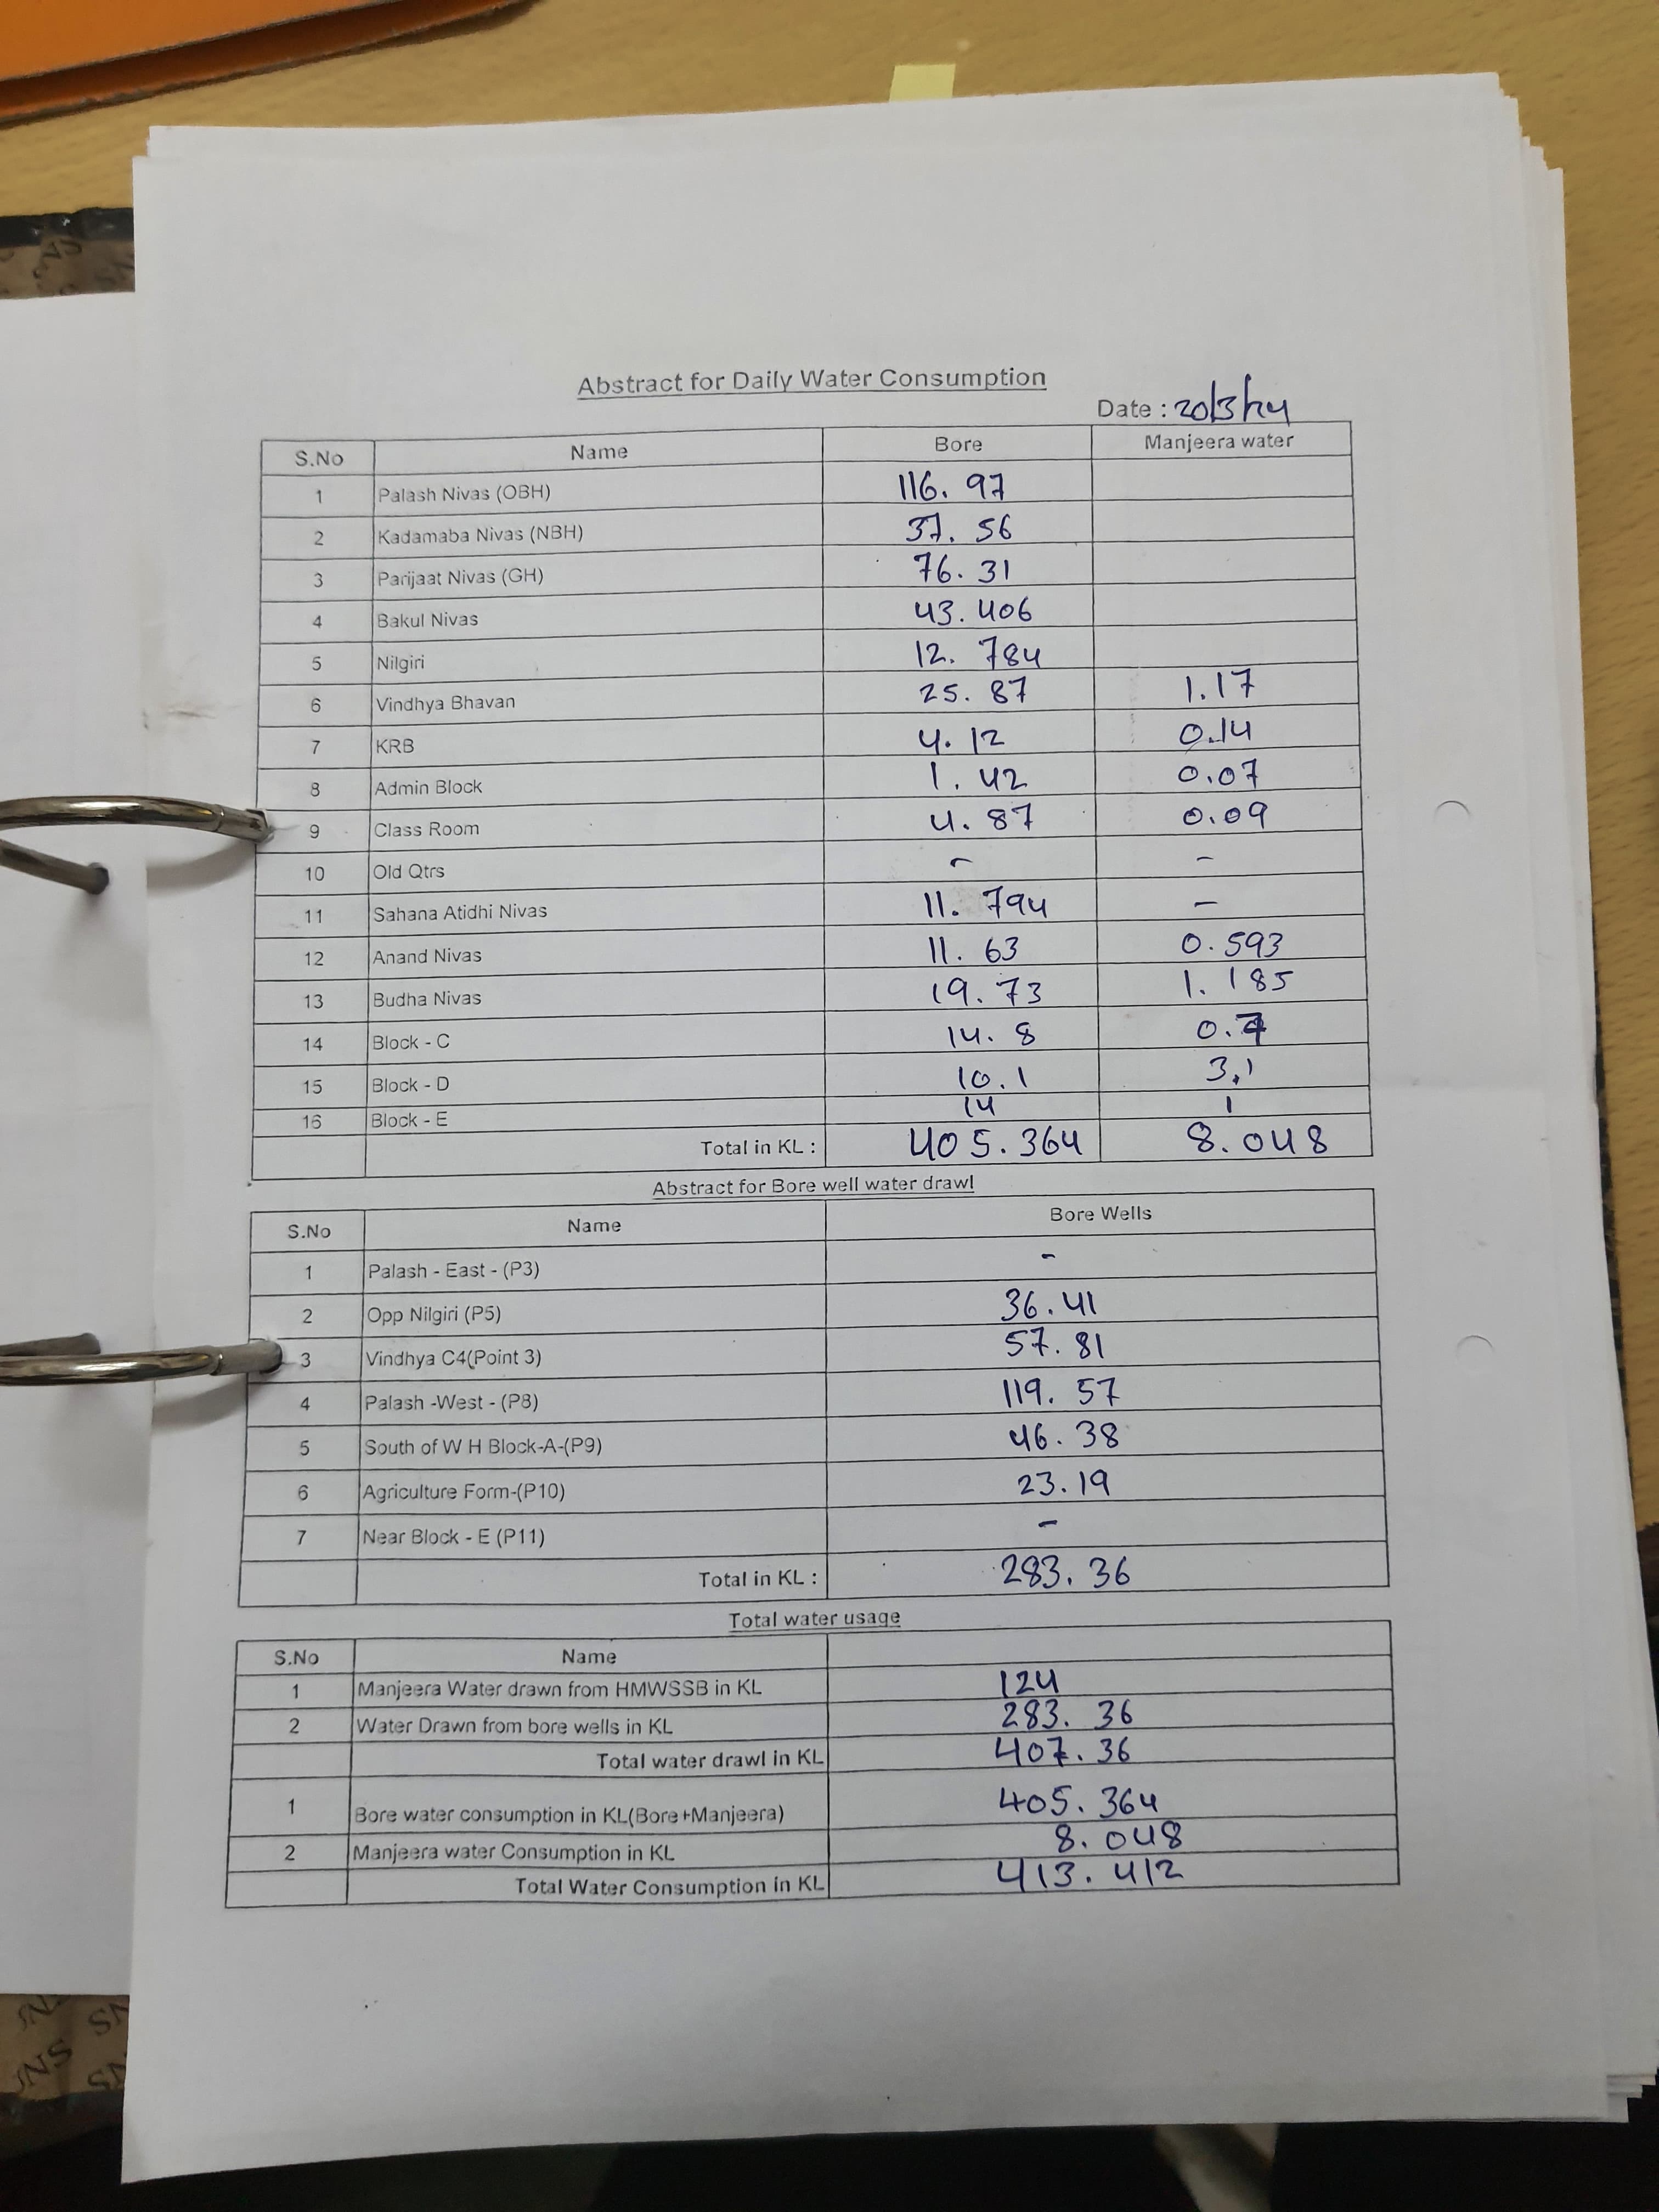 Abstract for Daily Water Consumption
Date : 20/3/24
S.No Name Bore Manjeera water
1 Palash Nivas (OBH) 116.97
2 Kadamaba Nivas (NBH) 37.56
3 Parijaat Nivas (GH) 76.31
4 Bakul Nivas 43.406
5 Nilgiri 12.784
6 Vindhya Bhavan 25.87 1.17
7 KRB 4.12 0.14
8 Admin Block 1.42 0.07
9 Class Room 4.87 0.09
10 Old Qtrs - -
11 Sahana Atidhi Nivas 11.794 -
12 Anand Nivas 11.63 0.593
13 Budha Nivas 19.73 1.185
14 Block - C 14.8 0.7
15 Block - D 10.1 3.1
16 Block - E 14 1
Total in KL : 405.364 8.048
Abstract for Bore well water drawl
S.No Name Bore Wells
1 Palash - East - (P3) -
2 Opp Nilgiri (P5) 36.41
3 Vindhya C4(Point 3) 57.81
4 Palash -West - (P8) 119.57
5 South of W H Block-A-(P9) 46.38
6 Agriculture Form-(P10) 23.19
7 Near Block - E (P11) -
Total in KL : 283.36
Total water usage
S.No Name
1 Manjeera Water drawn from HMWSSB in KL 124
2 Water Drawn from bore wells in KL 283.36
Total water drawl in KL 407.36
1 Bore water consumption in KL(Bore+Manjeera) 405.364
2 Manjeera water Consumption in KL 8.048
Total Water Consumption in KL 413.412
SNS